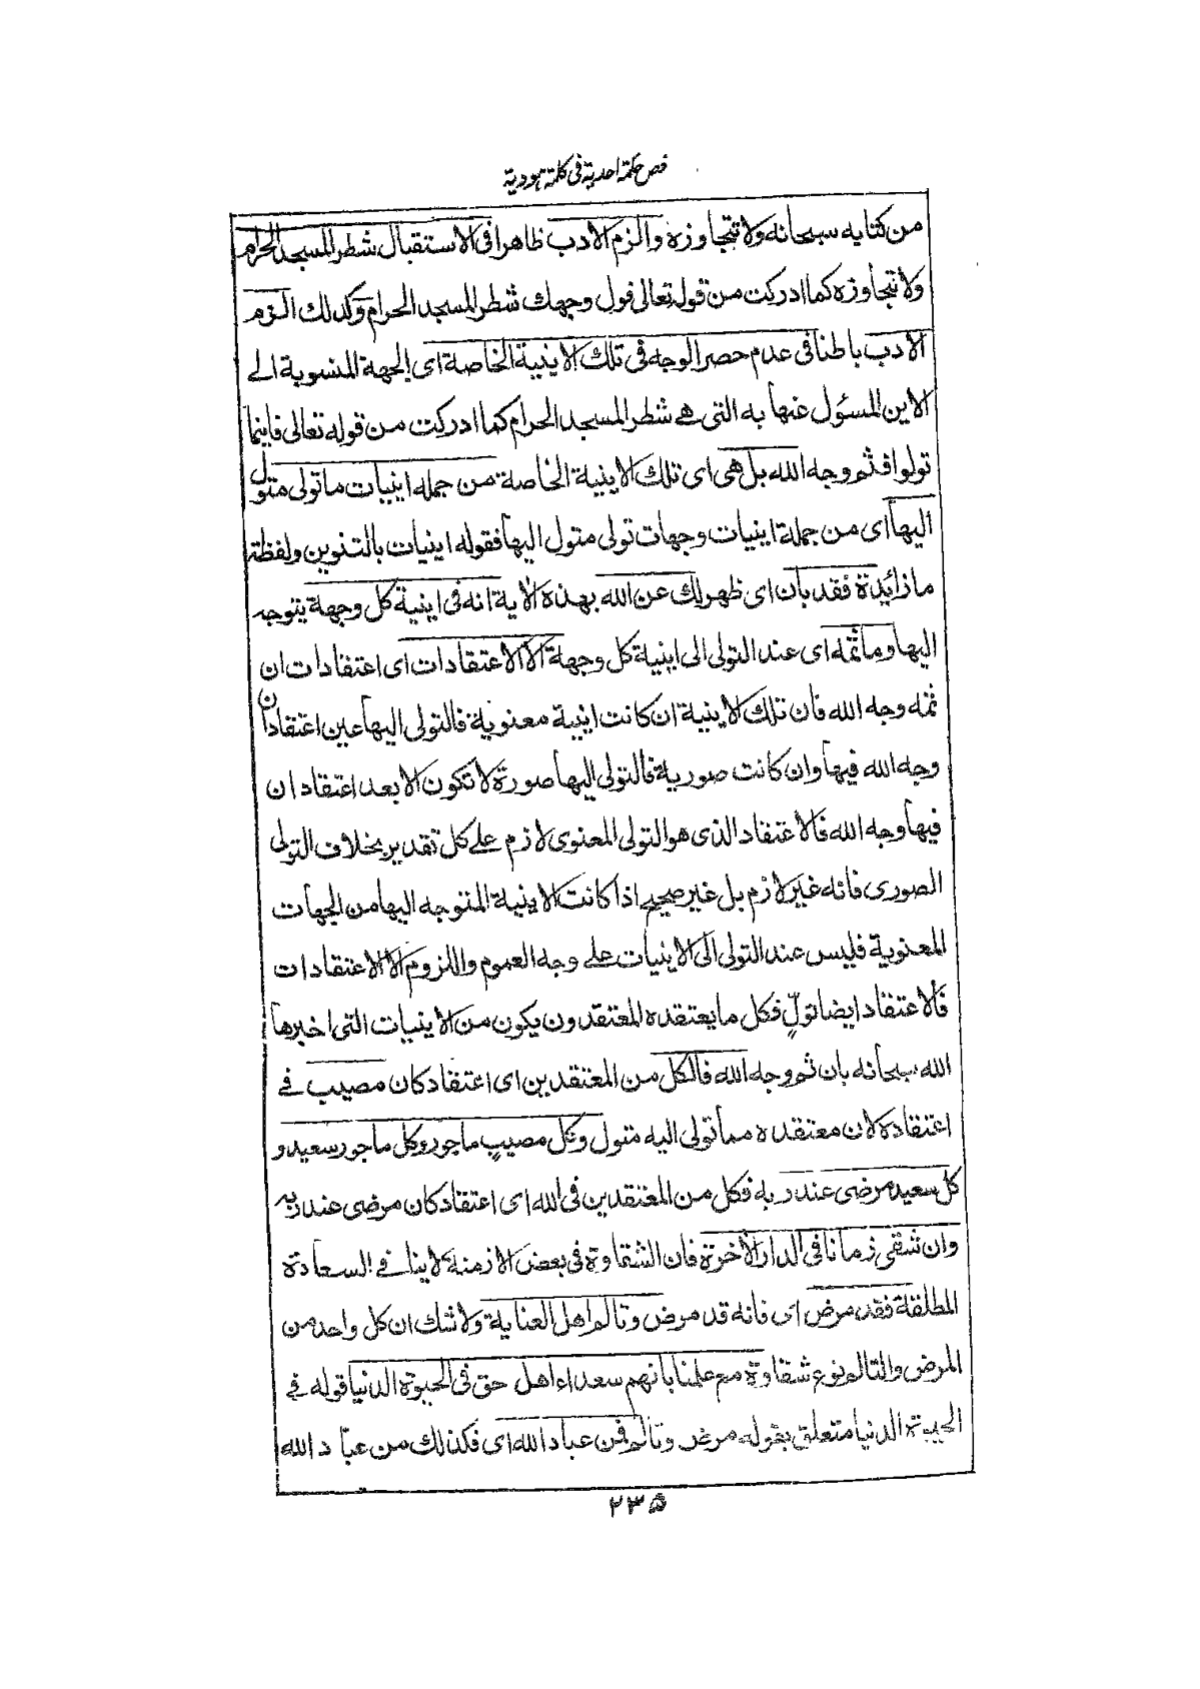 فص حكمة احدية فى كلمة هودية
من كتابه سبحانه ولا تتجاوزه والزم الادب ظاهرا فى الاستقبال شطر المسجد الحرام
ولا تتجاوزه كما ادركت من قوله تعالى فول وجهك شطر المسجد الحرام وكذلك الزم
الادب باطنا فى عدم حصر الوجه فى تلك الاينية الخاصة اى الجهة المنسوبة الى
الاين المسئول عنها به التى هے شطر المسجد الحرام كما ادركت من قوله تعالى فاينما
تولوا فثم وجه الله بل هى اى تلك الاينية الخاصة من جملة اينيات ما تولى متول
اليها اى من جملة اينيات وجهات تولى متول اليها فقوله اينيات بالتنوين ولفظة
ما زائدة فقد بان اى ظهر لك عن الله بهذه الاية انه فى اينية كل وجهة يتوجه
اليها وما ثمه اى عند التولى الى اينية كل وجهة الا الاعتقادات اى اعتقادات ان
ثمه وجه الله فان تلك الاينية ان كانت اينية معنوية فالتولى اليها عين اعتقاد ان
وجه الله فيها وان كانت صورية فالتولى اليها صورة لا تكون الا بعد اعتقاد ان
فيها وجه الله فالاعتقاد الذى هو التولى المعنوى لازم على كل تقدير بخلاف التولى
الصورى فانه غير لازم بل غير صحيح اذا كانت الاينية المتوجه اليها من الجهات
المعنوية فليس عند التولى الى الاينيات على وجه العموم واللزوم الا الاعتقادات
فالاعتقاد ايضا تولٍّ فكل ما يعتقده المعتقدون يكون من الاينيات التى اخبرها
الله سبحانه بان ثم وجه الله فالكل من المعتقدين اى اعتقاد كان مصيب فے
اعتقاده لان معتقده مما تولى اليه متول وكل مصيب ماجور وكل ماجور سعيد و
كل سعيد مرضى عند ربه فكل من المعتقدين فى الله اى اعتقاد كان مرضى عند ربه
وان شقى زمانا فى الدار الأخرة فان الشقاوة فى بعض الازمنة لا ينا فے السعادة
المطلقة فقد مرض اى فانه قد مرض وتالم اهل العناية ولا شك ان كل واحد من
المرض والتالم نوع شقاوة مع علمنا بانهم سعداء اهل حق فى الحيوة الدنيا قوله فے
الحيوة الدنيا متعلق بقوله مرض وتالم فمن عباد الله اى فكذلك من عبّاد الله
۲۳۵